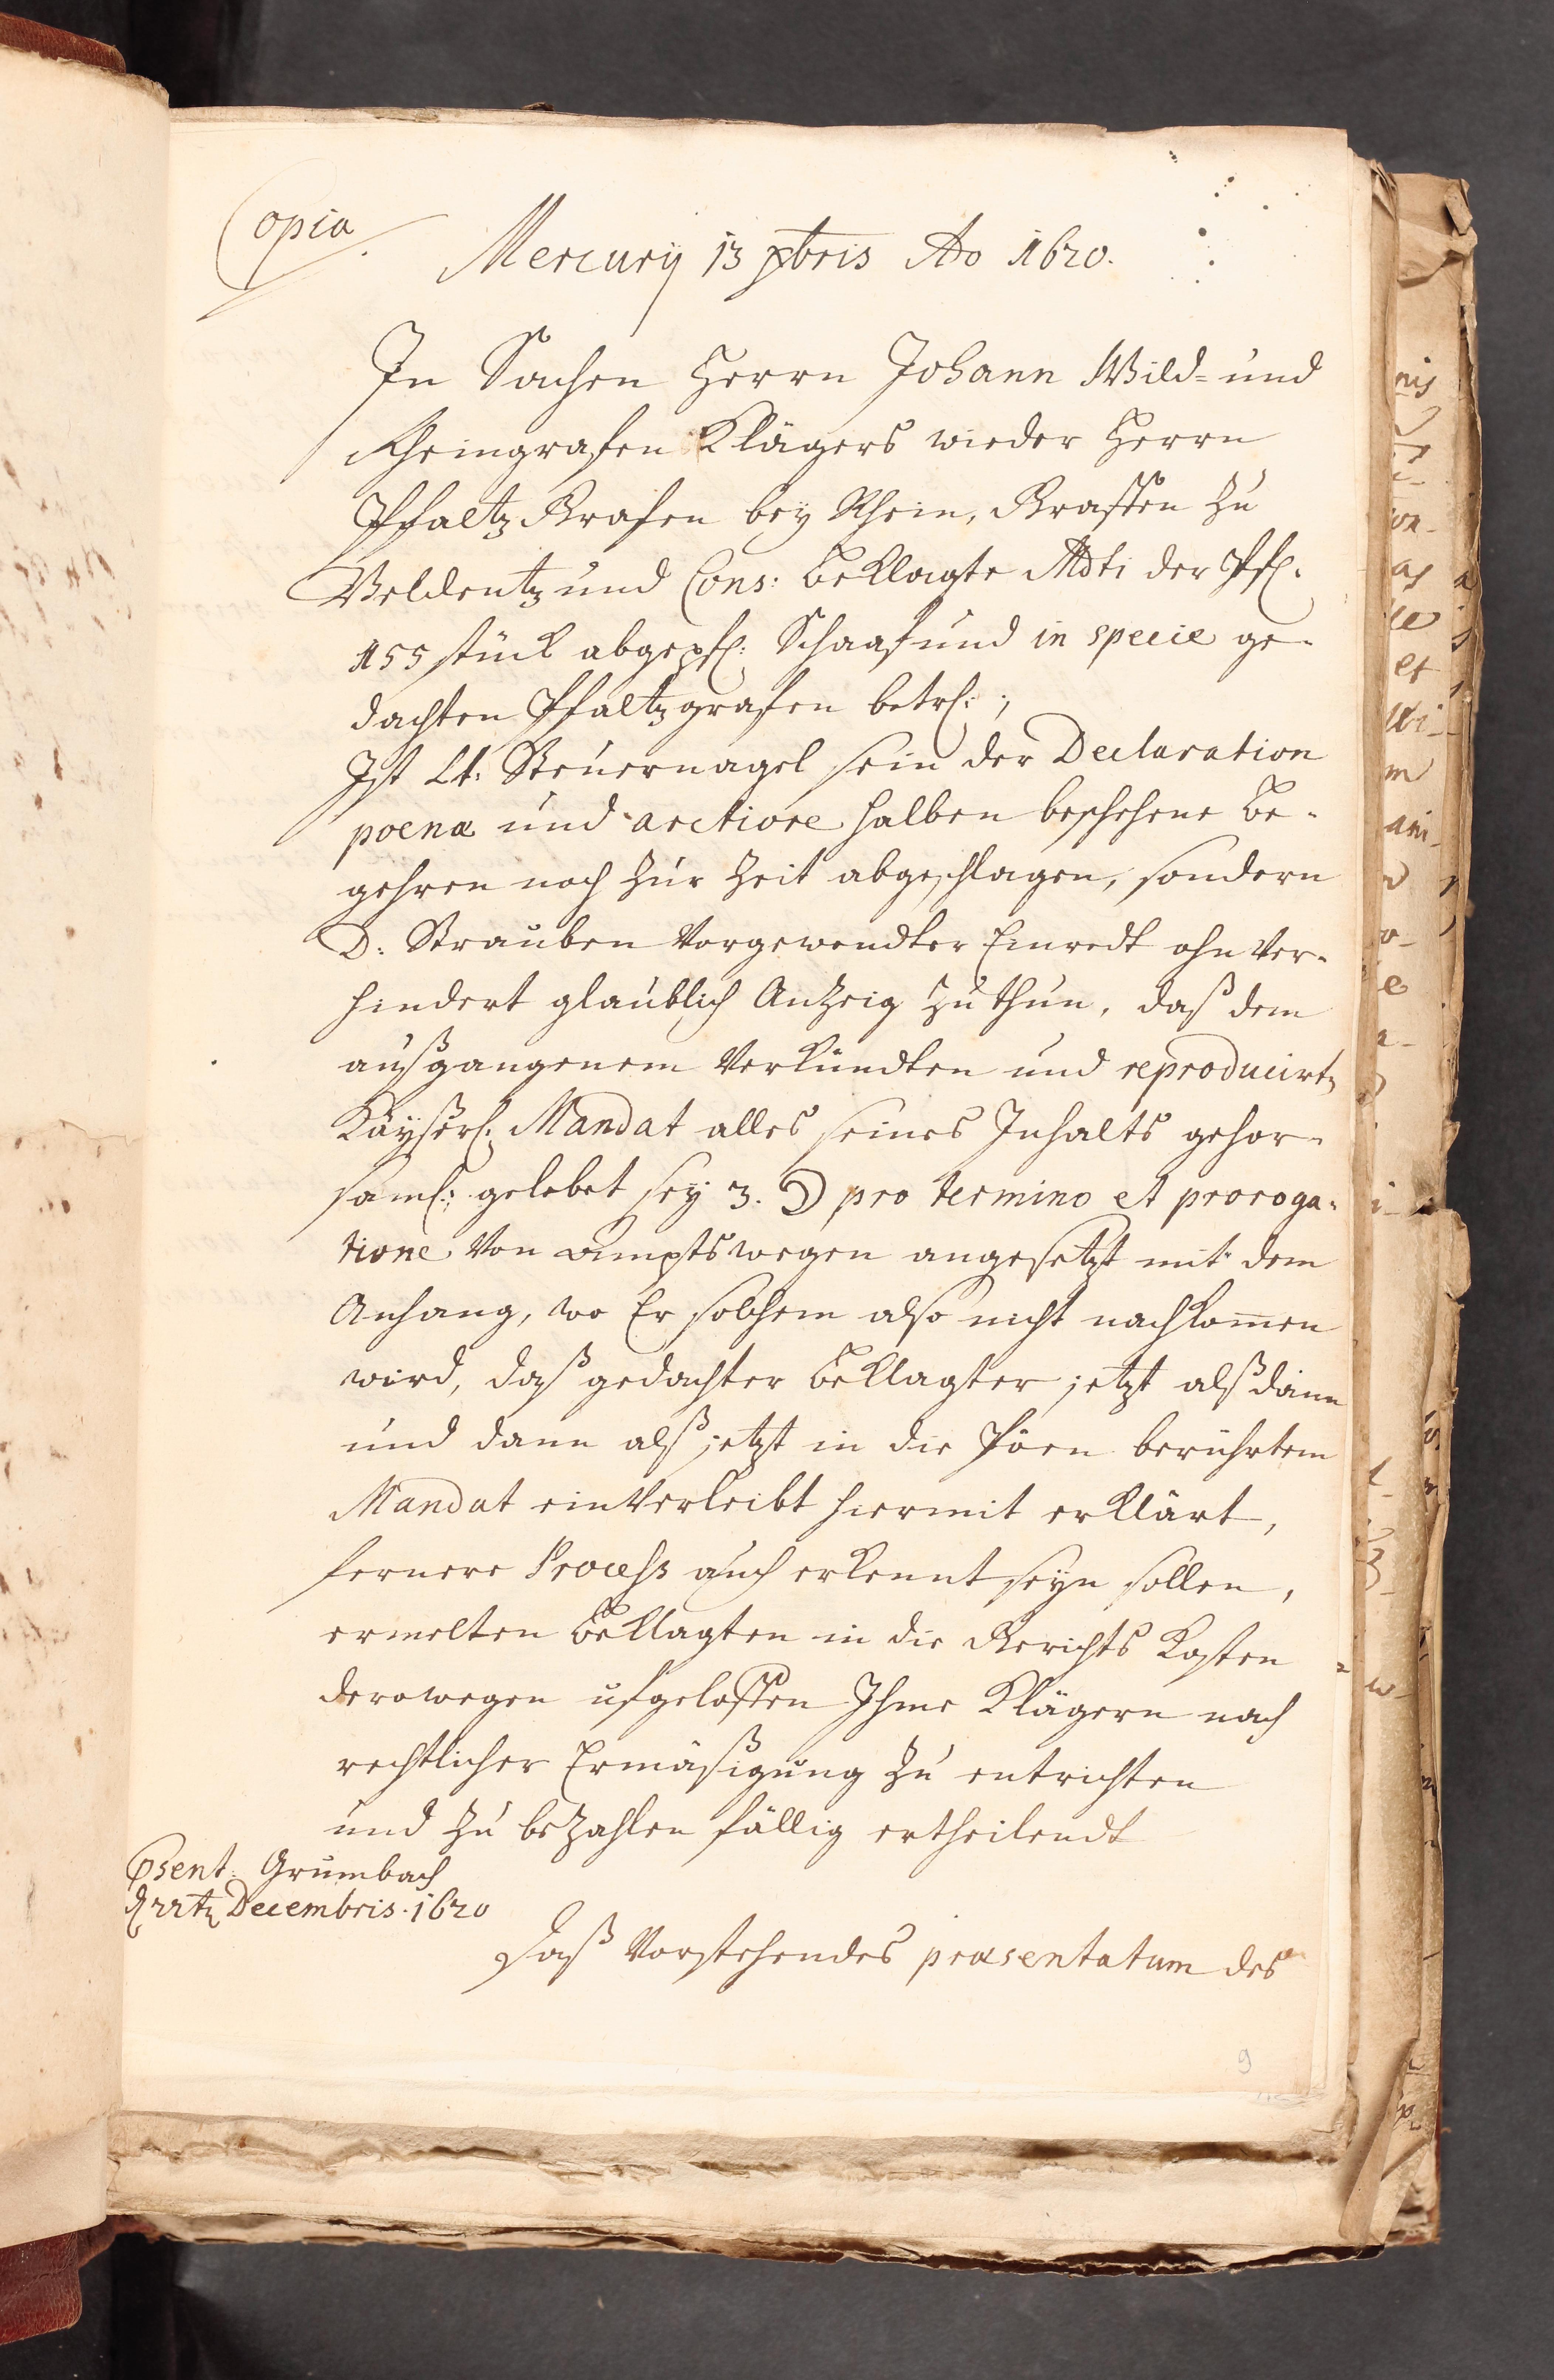 Copia
Mercurij 13 Xbris Ao 1620.
In Sachen Herrn Johann Wild= und
Rheingrafen Klägers wieder Herrn
Pfaltz Grafen bey Rhein, Graffen zu
Veldentz und Cons: Beklagte Mdti der Pf.
155 stück abgepf: Schaaf und in specie ge-
dachten Pfaltzgrafen betrf:;
Ist Lt: Steuernagel sein der Declaration
poenæ und arctiore halben beschehene Be-
gehren noch zur Zeit abgeschlagen, sondern
D: Strauben vorgewendter Einredt ohnver-
hindert glaublich Anzeig zu thun, daß dem
außgangenem verkündten und reproducirt
Kayßerl: Mandat alles seines Inhalts gehor-
saml: gelebet sey 3. D pro termino et proroga-
tione von Ampts wegen angesetzt mit dem
Anhang, wo Er solchem also nicht nachkomen
wird, daß gedachter Beklagter jetzt alß dann
und dann alß jetzt in die Pöen berührtem
Mandat einverleibt hiermit erklärt,
fernere Process auch erkennt seyn sollen,
ermelten Beklagten in die Gerichts Kosten
derowegen ufgeloffen Ihme Klägern nach
rechtlicher Ermäßigung zu entrichten
und zu bezahlen fällig ertheilendt
Psent: Grumbach
Decembris. 1620
Daß vorstehendes præsentatum des
9